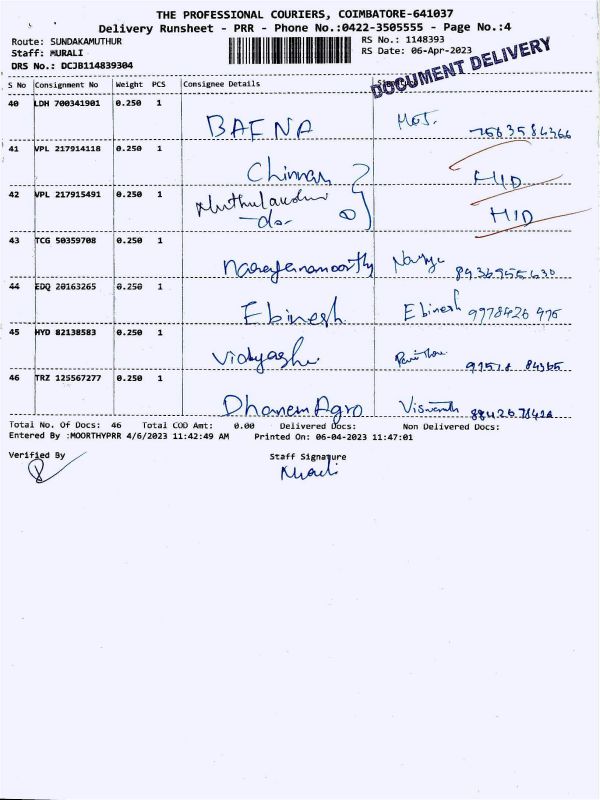 THE PROFESSIONAL COURIERS, COIMBATORE-641037
Delivery Runsheet - PRR - Phone No.:0422-3505555 - Page No.:4
Route: SUNDAKAMUTHUR
RS No.: 1148393
Staff: MURALI
RS Date: 06-Apr-2023
DRS No.: DCJB114839304
DOCUMENT DELIVERY
S No Consignment No Weight PCS Consignee Details
40 LDH 700341901 0.250 1
BAENA
41 VPL 217914118 0.250 1
Chinnan H/D
42 VPL 217915491 0.250 1
-do- H/D
43 TCG 50359708 0.250 1
44 EDQ 20163265 0.250 1
Ebinesh Ebinesh 9978426 976
45 HYD 82138583 0.250 1
46 TRZ 125567277 0.250 1
Dhanem Agro
Total No. Of Docs: 46 Total COD Amt: 0.00 Delivered Docs: Non Delivered Docs:
Entered By :MOORTHYPRR 4/6/2023 11:42:49 AM Printed On: 06-04-2023 11:47:01
Verified By
Staff Signature